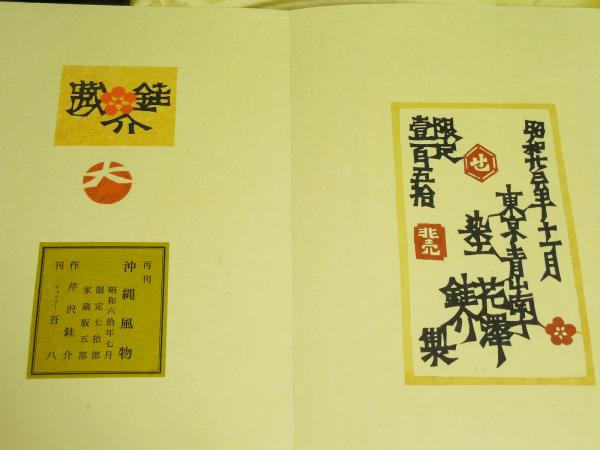 昭和廿三年十一月
東京青山南
芹澤銈介
製
限定
壹百五拾
非売
銈介蔵
大
再刊
沖縄風物
昭和六拾年七月
限定七拾部
家蔵版五部
作 芹沢銈介
刊 ギャラリー 吾八